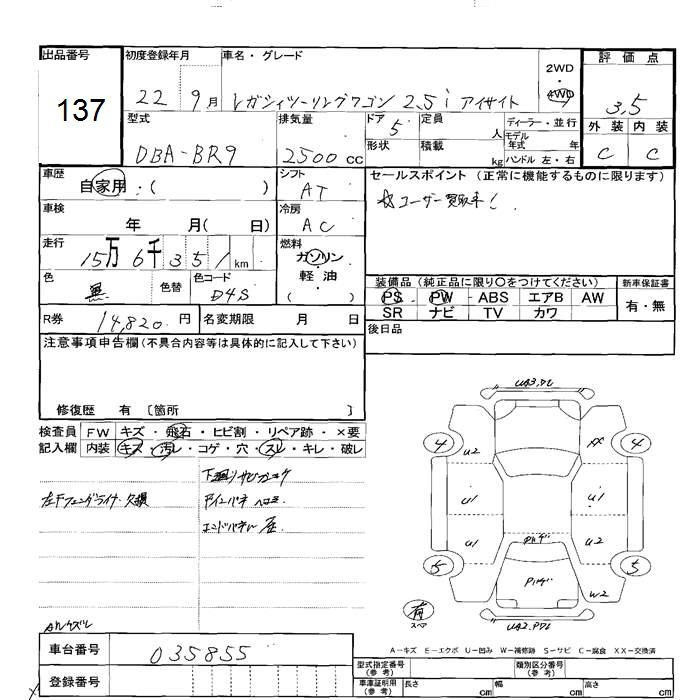 出品番号 初度登録年月 車名・グレード 2WD・4WD 評価点
137
22 9月 レガシィツーリングワゴン 2.5i アイサイト 3.5
型式 排気量 ドア 5 定員 人 ディーラー・並行 外装 内装
モデル年式 年
DBA-BR9 2500 cc 形状 積載 kg ハンドル 左・右 C C
車歴 自家用:( ) シフト AT
セールスポイント (正常に機能するものに限ります)
☆ユーザー買取車!
車検 年 月( 日) 冷房 AC
走行 15万6千351km 燃料 ガソリン・軽油・( )
色 黒 色替 色コード D4S
装備品(純正品に限り○をつけてください) 新車保証書
PS PW ABS エアB AW 有・無
SR ナビ TV カワ
R券 14,820円 名変期限 月 日 後日品
注意事項申告欄(不具合内容等は具体的に記入して下さい)
修復歴 有 〔箇所 〕
検査員 FW キズ・飛石・ヒビ割・リペア跡・×要
記入欄 内装 キズ・汚レ・コゲ・穴・スレ・キレ・破レ
下廻りサビ
左Fフェンダーライナー欠損
エンドパネル
UA3,PDL
4 U2 XX 4
U1 U1
U1 Pハゲ U2
5 Pハゲ W2 5
有 スペア
UA2.PDL
A-キズ E-エクボ U-凹み W-補修跡 S-サビ C-腐食 XX-交換済
車台番号 035855
型式指定番号(参考) 類別区分番号(参考)
登録番号
車庫証明用(参考) 長さ cm 幅 cm 高さ cm